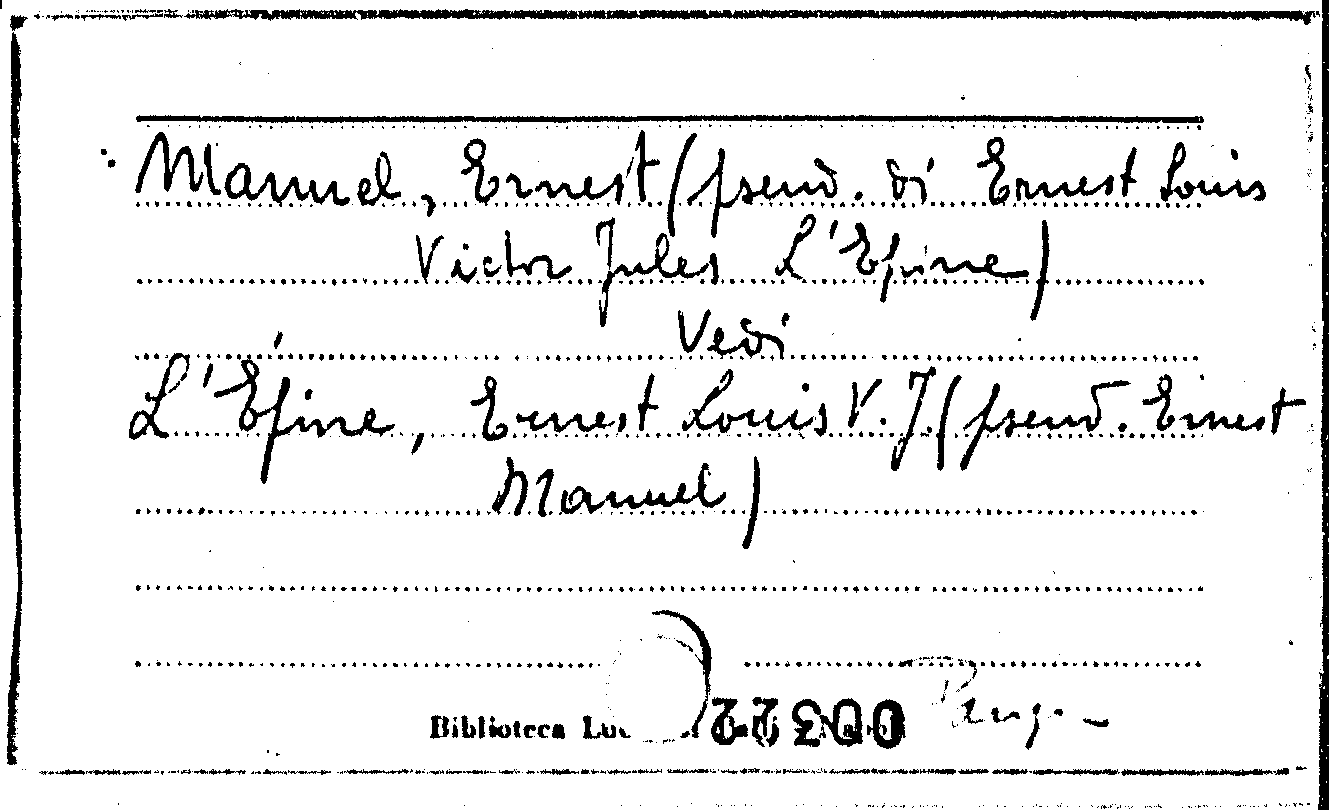 Manuel, Ernest (pseud. di Ernest Louis
Victor Jules L'Epine)
Vedi
L'Épine, Ernest Louis V. J. (pseud. Ernest
Manuel)
Biblioteca